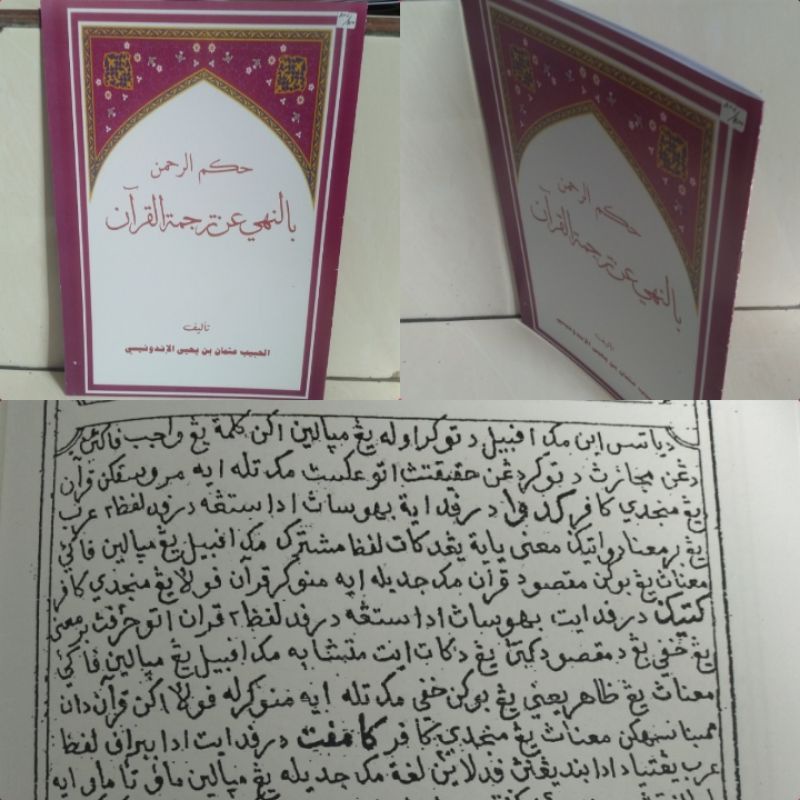 حكم الرحمن
بالنهي عن ترجمة القرآن
تأليف
الحبيب عثمان بن يحيى الإندونيسي
حكم الرحمن
بالنهي عن ترجمة القرآن
تأليف
دياتس اين مك افبيل دتوكر اوله يڠ مپالين اكن كلمة يڠ واجب فاكي
دڠن مجازڽ دتوكر دڠن حقيقتڽ اتو عكسڽ مك تله ايه مروسقكن قرآن
يڠ منجدي كافر كدوا درفد اية بهوساڽ اد ستڠه درفد لفظ٢ عرب
يڠ برمعنى دوا تيݢ معنى يايه يڠ دكات لفظ مشترك مك افبيل يڠ مپالين فاكي
معناڽ يڠ بوكن مقصود قرآن مك جديله ايه منوكر قرآن فولا يڠ منجدي كافر
كتيݢ درفد ايت بهوساڽ اد ستڠه درفد لفظ٢ قران اتو حرفڽ برمعنى
يڠ خفي يڠ دمقصودكن يڠ دكات ايت متشابه مك افبيل يڠ مپالين فاكي
معناڽ يڠ ظاهر يعني يڠ بوكن خفي مك تله ايه منوكرله فولا اكن قرآن دان
معناڽ يڠ منجدي كافر كامفت درفد ايت اد ببراف لفظ
عرب يڠ تياد اد بنديڠنڽ فد لاين لغة مك جديله يڠ مپالين مافي تا مافي ايه